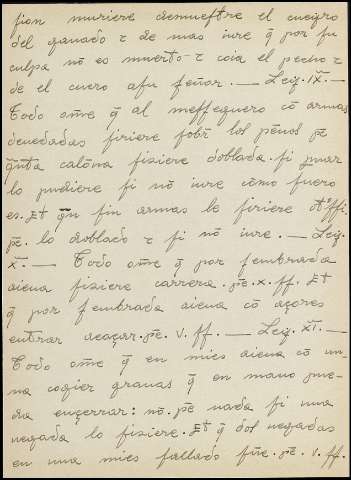 sion muriere demuestre el cuegro
del ganado τ de mas iure q̄ por su
culpa nō es muerto τ coia el pecho τ
de el cuero asu señor. — Ley. IX. —
Todo om̄e q̄ al messeguero cō armas
deuedadas firiere sobr̄ los pēnos pē
q̄nta calōna fiziere doblada. si puar
lo pudiere si nō iure cōmo fuero
es. Et qn̄ sin armas le firiere
pē. lo doblado τ si nō iure. — Ley.
X. — Todo om̄e q̄ por sembrada
aiena fiziere carrera. pē. x. ss. Et
q̄ por sembrada aiena cō açores
entrar acaçar. pē. v. ss. — Ley. XI. —
Todo om̄e q̄ en mies aiena cō un
na cogier granas q̄ en mano pue
da ençerrar: nō. pē nada si una
uegada lo fiziere. Et q̄ dos uegadas
en una mies fallado fūe. pē. v. ss.